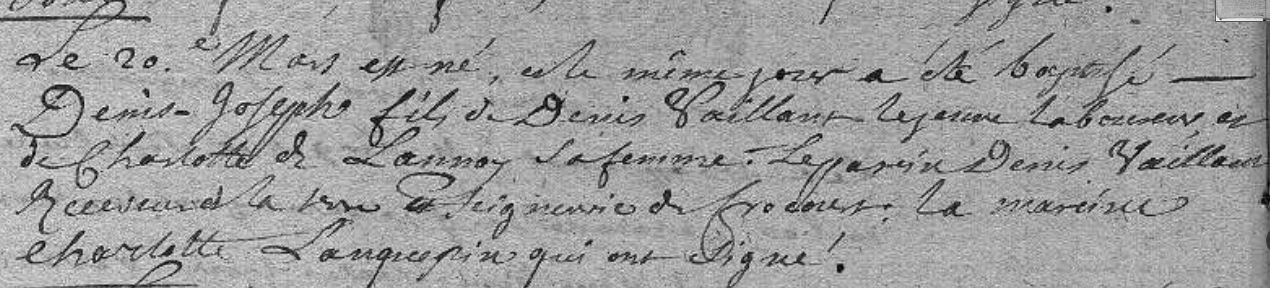 Le 20.e Mars est né, et le même jour a été baptisé —
Denis-Joseph fils de Denis Vaillant le jeune laboureur et
de Charlotte de Lannoy sa femme. Le parein Denis Vaillant
Receveur de la terre et Seigneurie de Crocourt. la mareine
Charlotte Languepin qui ont signé.